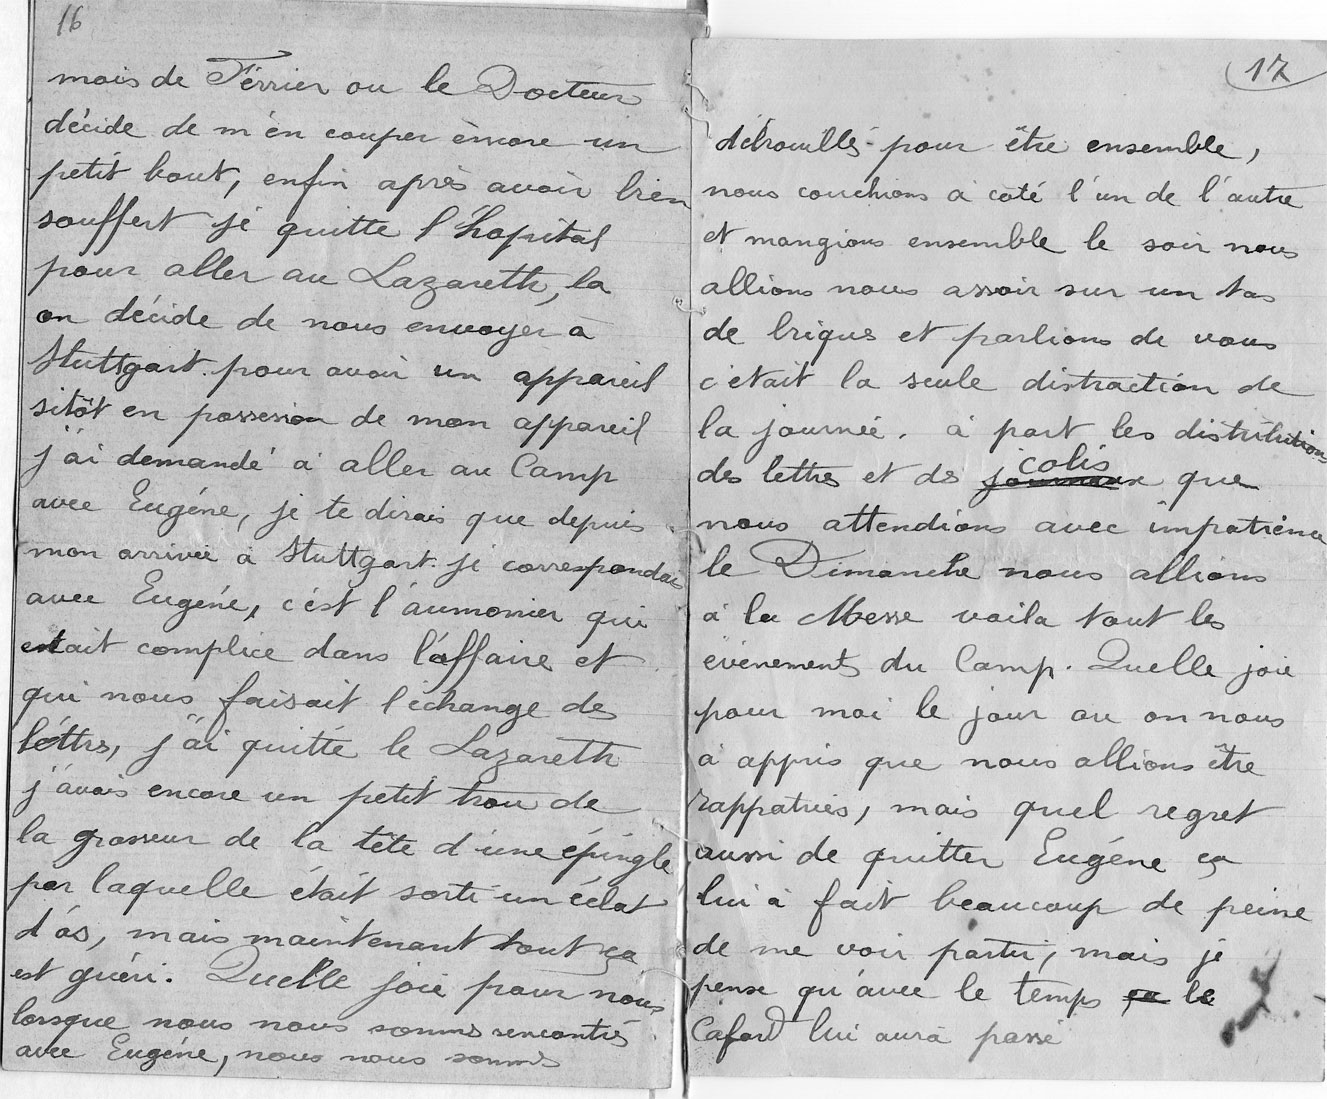 16
mois de Férrier ou le Docteur
décide de m'en couper encore un
petit bout, enfin après avoir bien
souffert je quitte l'hopital
pour aller au Lazareth, la
on décide de nous envoyer à
Stuttgart pour avoir un appareil
sitôt en possession de mon appareil
j'ai demandé a aller au Camp
avec Eugéne, je te dirais que depuis
mon arrivée a Stuttgart je correspondais
avec Eugéne, c'est l'aumonier qui
était complice dans l'affaire et
qui nous faisait l'échange des
léttrs, j'ai quitté le Lazareth
j'avais encore un petit trou de
la grosseur de la tête d'une épingle
par laquelle était sorti un éclat
d'os, mais maintenant tout ça
est guéri. Quelle joie pour nous
lorsque nous nous somms rencontrés
avec Eugéne, nous nous somms
17
débrouillés pour être ensemble,
nous couchions a coté l'un de l'autre
et mangions ensemble le soir nous
allions nous assoir sur un tas
de briques et parlions de vous
c'etait la seule distraction de
la journée. à part les distributions
des lettres et des journaux colis que
nous attendions avec impatience
le Dimanche nous allions
a la Messe voila tout les
évènements du Camp. Quelle joie
pour moi le jour ou on nous
à appris que nous allions être
rappatriés, mais quel regret
aussi de quitter Eugéne ça
lui à fait beaucoup de peine
de me voir partir, mais je
pense qu'avec le temps le
Cafard lui aura passé